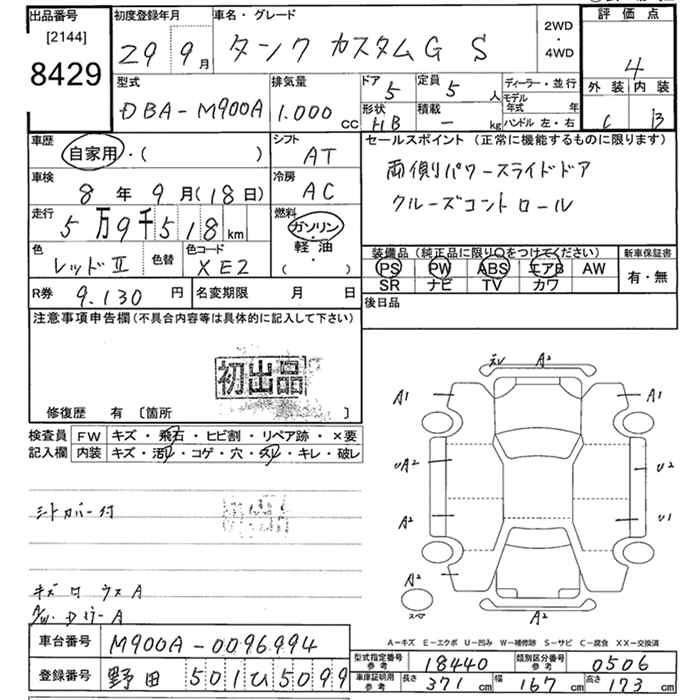 出品番号
[2144]
8429
初度登録年月
29 9月
車名・グレード
タンク カスタムG S
2WD
・
4WD
評価点
4
外装 内装
C B
型式
DBA-M900A
排気量
1.000 CC
ドア
5
定員
5 人
形状
HB
積載
ー kg
ディーラー・並行
モデル年式 年
ハンドル 左・右
車歴
自家用・( )
シフト
AT
車検
8年9月(18日)
冷房
AC
走行
5万9千518km
燃料
ガソリン・
軽油・
( )
色
レッドⅡ
色替
色コード
XE2
R券 9.130円
名変期限 月 日
セールスポイント (正常に機能するものに限ります)
両側パワースライドドア
クルーズコントロール
装備品(純正品に限り○をつけてください)
PS PW ABS エアB AW
SR ナビ TV カワ
新車保証書
有・無
後日品
注意事項申告欄(不具合内容等は具体的に記入して下さい)
初出品
修復歴 有 〔箇所 〕
検査員記入欄
FW キズ・飛石・ヒビ割・リペア跡・×要
内装 キズ・汚レ・コゲ・穴・スレ・キレ・破レ
シートカバー付
A2
A1 A1
UA2 U2
A2 U1
A2
A2
スペア
A-キズ E-エクボ U-凹み W-補修跡 S-サビ C-腐食 XX-交換済
車台番号 M900A-0096994
登録番号 野田 501ひ5099
型式指定番号参考 18440
類別区分番号参考 0506
車庫証明用参考 長さ 371cm 幅 167cm 高さ 173cm